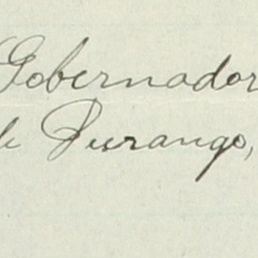 Gobernador
de Durango,